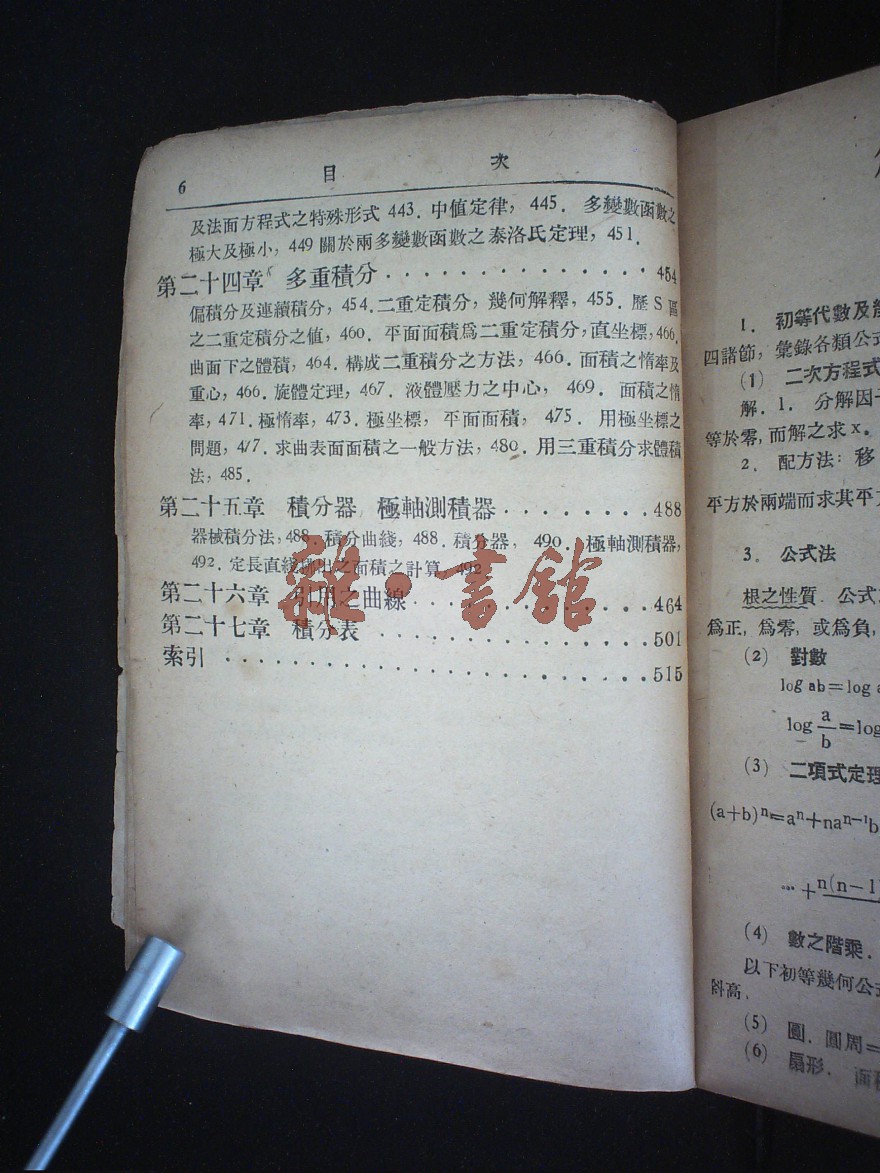 6 目 次
及法面方程式之特殊形式 443. 中値定律, 445. 多變數函數之
極大及極小, 449 關於兩多變數函數之泰洛氏定理, 451.
第二十四章 多重積分 . . . . . . . . . . . . . . . 454
偏積分及連續積分, 454. 二重定積分, 幾何解釋, 455. 歷 S 區
之二重定積分之值, 460. 平面面積爲二重定積分, 直坐標, 466.
曲面下之體積, 464. 構成二重積分之方法, 466. 面積之惰率及
重心, 466. 旋體定理, 467. 液體壓力之中心, 469. 面積之惰
率, 471. 極惰率, 473. 極坐標, 平面面積, 475. 用極坐標之
問題, 4/7. 求曲表面面積之一般方法, 480. 用三重積分求體積
法, 485.
第二十五章 積分器 極軸測積器 . . . . . . . . 488
器械積分法, 488. 積分曲綫, 488. 積分器, 490. 極軸測積器,
492. 定長直綫 之面積之計算 492
第二十六章 引用之曲線 . . . . . . . . . . . . 464
第二十七章 積分表 . . . . . . . . . . . . . . 501
索引 . . . . . . . . . . . . . . . . . . . . . 515
雜·書館
1. 初等代數及
四諸節, 彙錄各類公式
(1) 二次方程式
解. 1. 分解因
等於零, 而解之求 x。
2. 配方法: 移
平方於兩端而求其平方
3. 公式法
根之性質. 公式
爲正, 爲零, 或爲負,
(2) 對數
log ab=log a
log a/b=log
(3) 二項式定理
(a+b)ⁿ=aⁿ+naⁿ⁻¹b
… +n(n−1)
(4) 數之階乘.
以下初等幾何公式
斜高.
(5) 圓. 圓周=
(6) 扇形. 面積